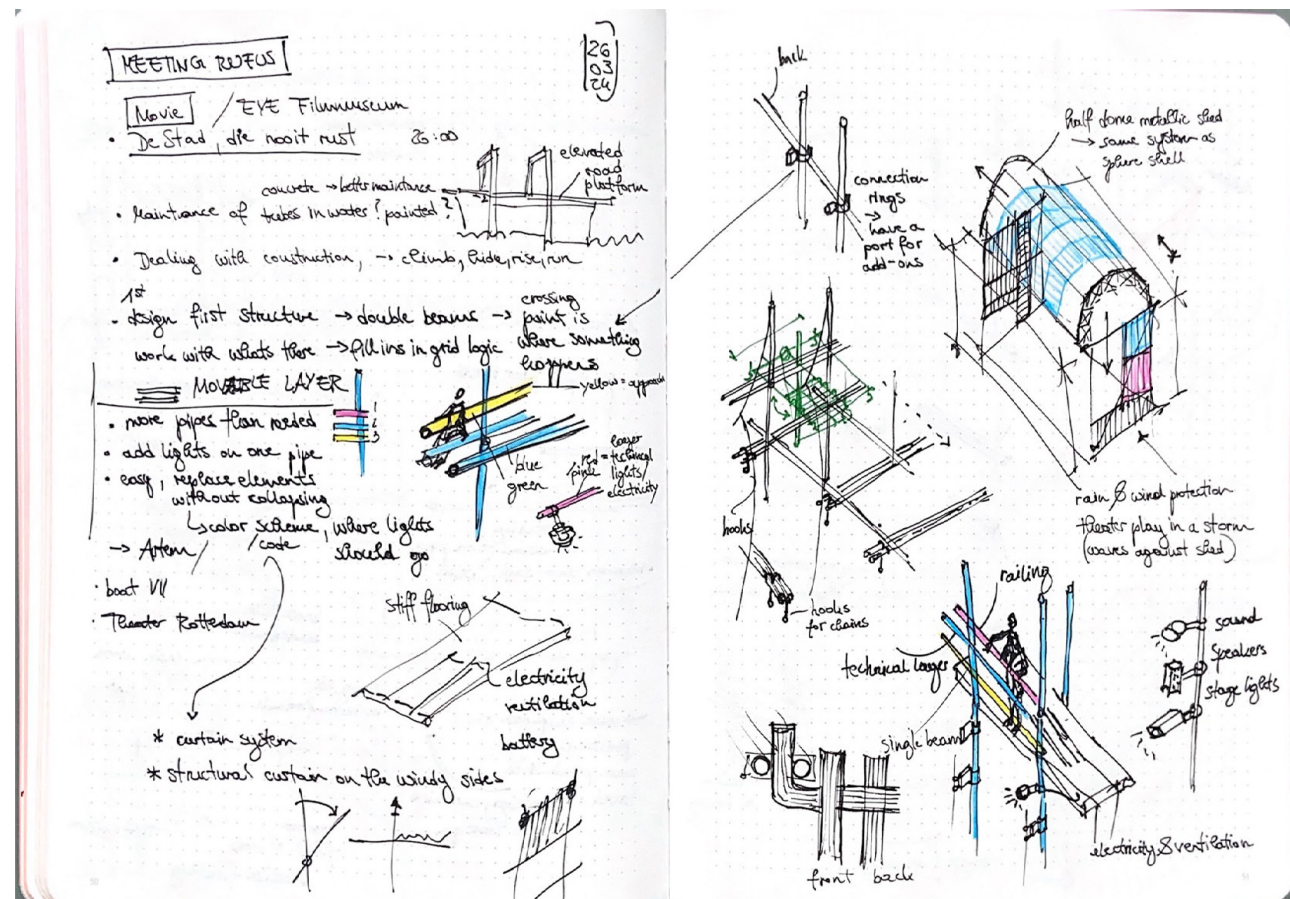 MEETING RUFUS
26
03
24
Movie / EYE Filmmuseum
• De Stad, die nooit rust
elevated
road
platform
concrete → better maintance
• Maintrance of tubes in water? painted?
• Dealing with construction, → climb, hide, rise, run
1st
• design first structure → double beams → crossing
point is
where something
happens
work with whats there → fill ins in grid logic
MOVABLE LAYER
• more pipes than needed
• add lights on one pipe
• easy, replace elements
without collapsing
↳ color scheme, where lights
/code should go
→ Artem
• boat VII
• Theater Rotterdam
1
2
3
yellow =
blue
green
red
pink
= layer
technical
lights/
electricity
stiff flooring
electricity
ventilation
battery
* curtain system
* structural curtain on the windy sides
back
connection
rings
→ have a
port for
add-ons
half dome metallic shed
→ same system as
sphere shell
hooks
hooks
for chains
rain & wind protection
theater play in a storm
(waves against shed)
railing
technical layer
single beam
sound
speakers
stage lights
electricity & ventilation
front back